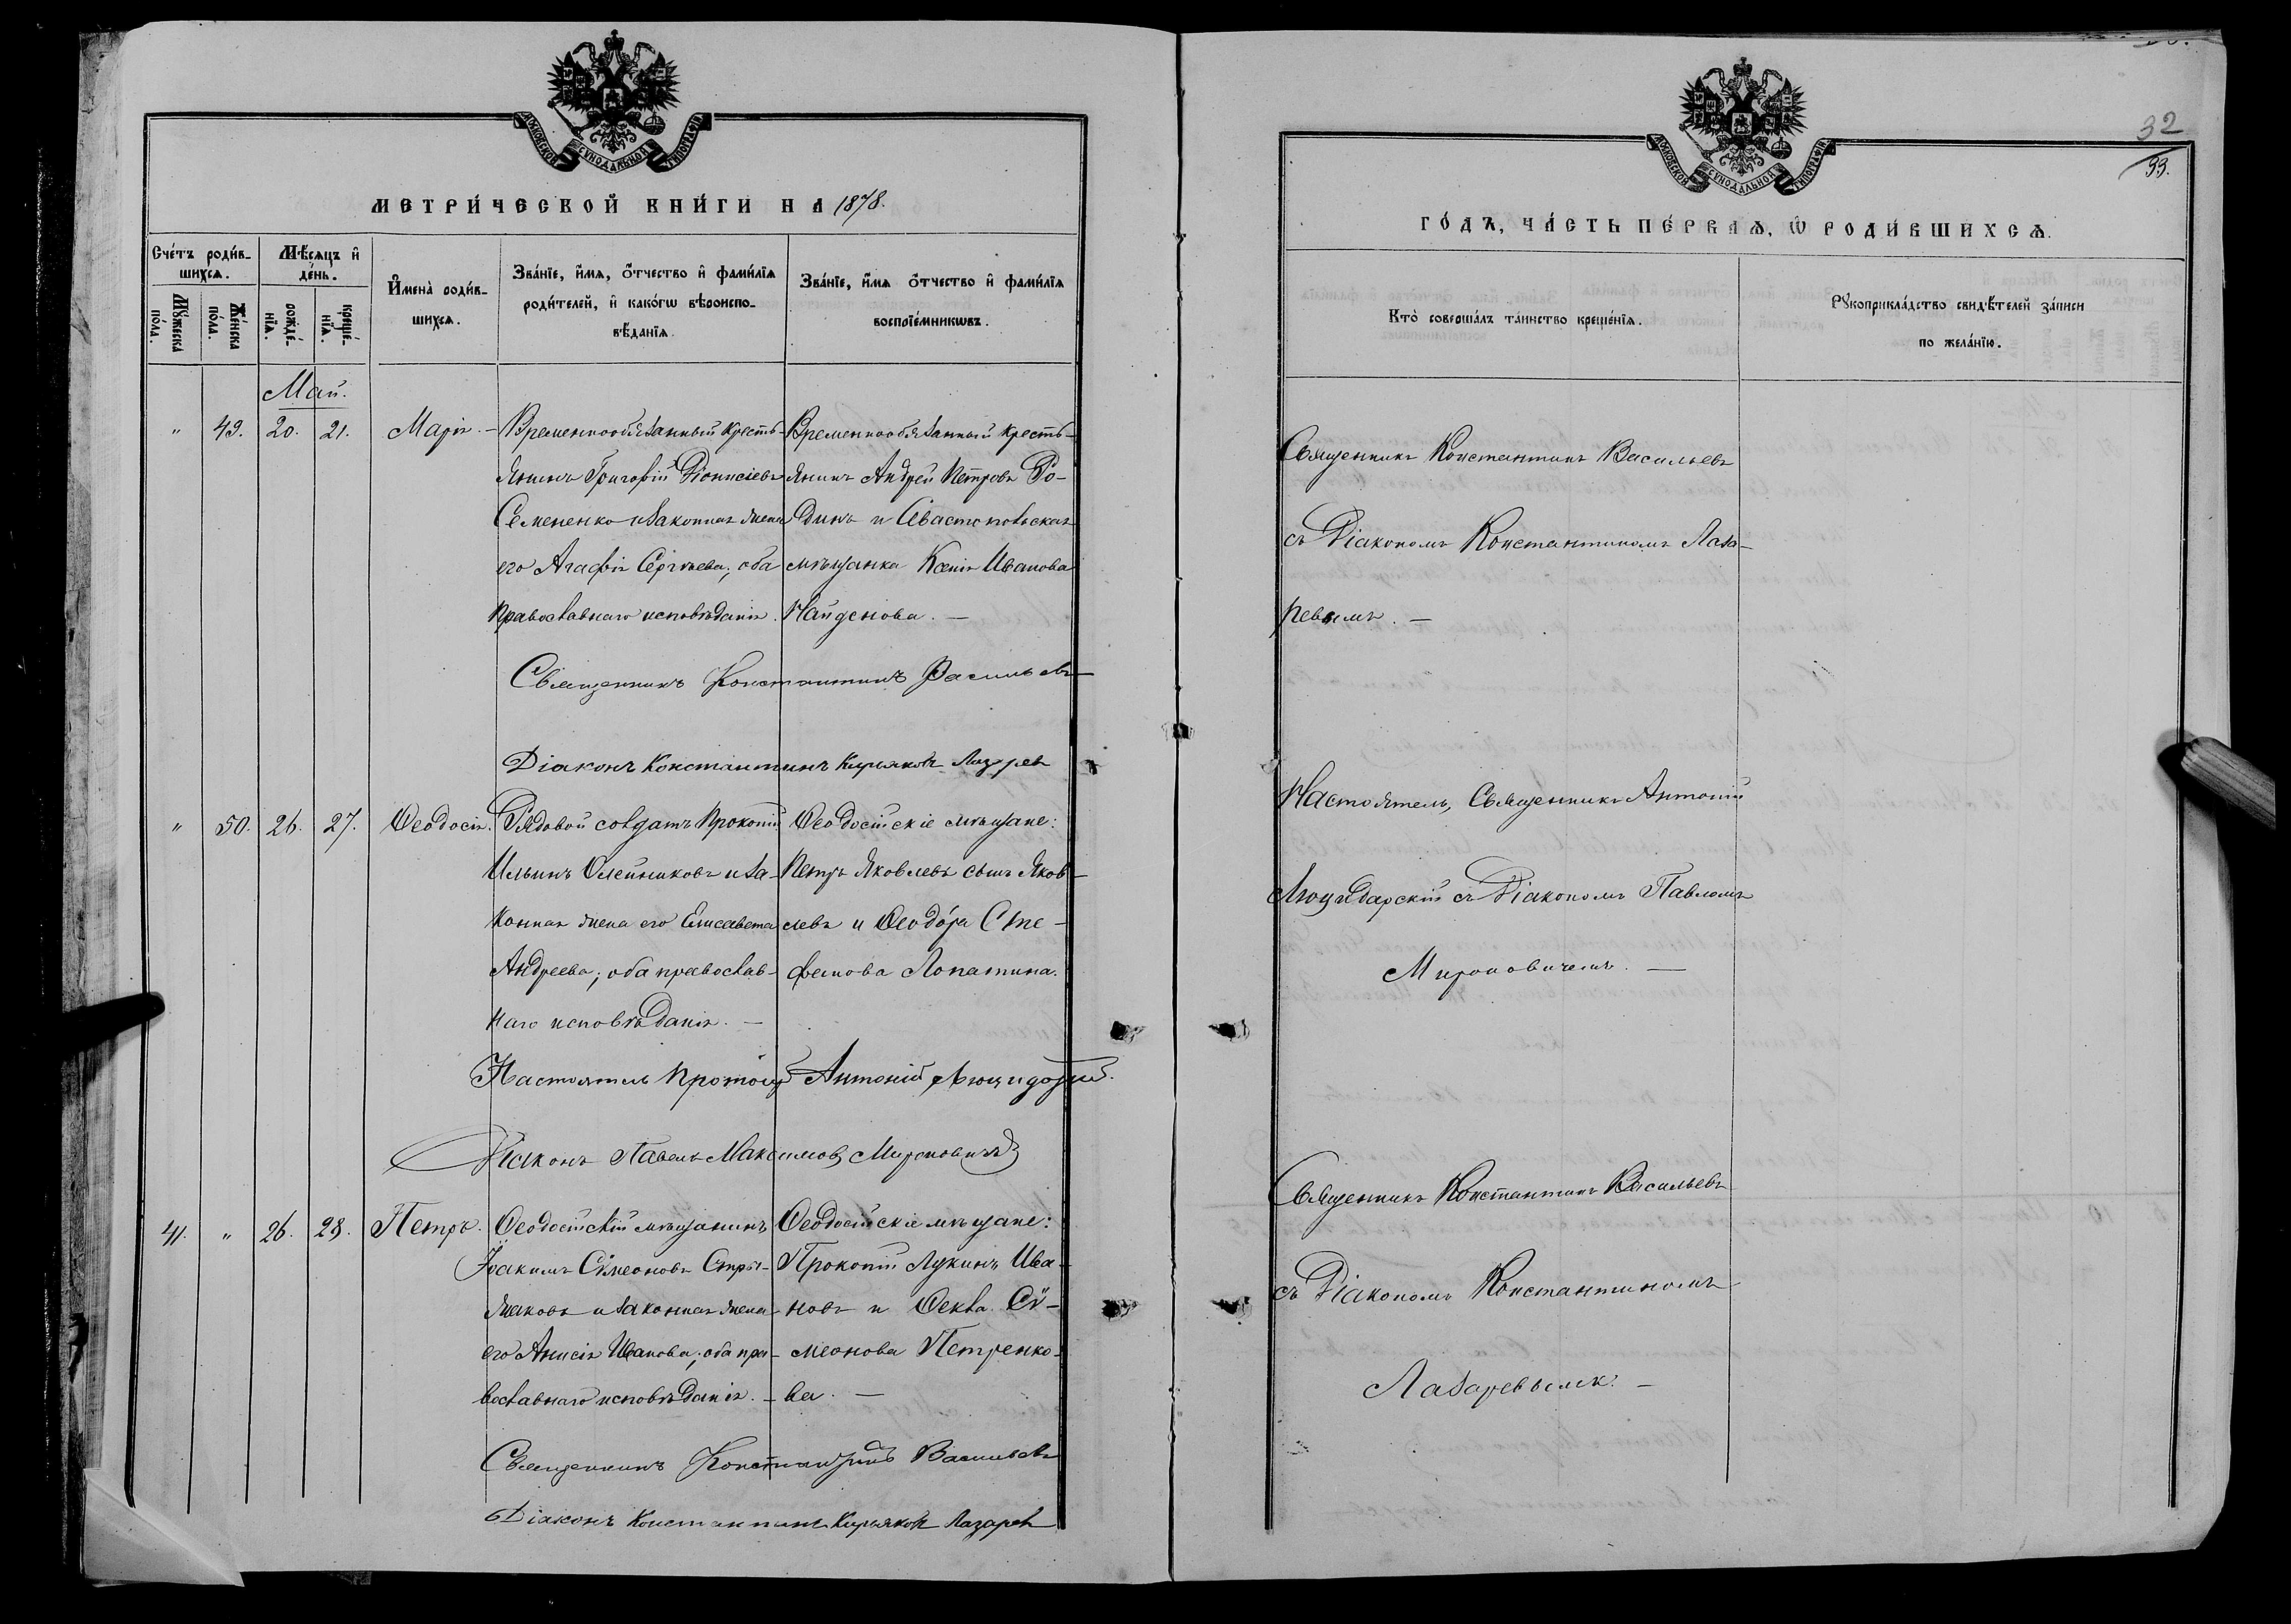 МОСКОВСКОЙ СѴНОДАЛЬНОЙ ТИПОГРАФІИ
МЕТРИ́ЧЕСКОЙ КНИ́ГИ НА 1878.
Сче́тъ роди́вшихсѧ.
Мꙋ́жеска по́ла.
Же́нска по́ла.
Мѣ́сѧцъ и҆ де́нь.
рожде́нїѧ.
креще́нїѧ.
И҆мена̀ роди́вшихсѧ.
Зва́нїе, и҆́мѧ, ѻ҆́тчество и҆ фами́лїѧ
роди́телей, и҆ како́гѡ вѣроиспо-
вѣ́данїѧ.
Зва́нїе, и҆́мѧ ѻ҆́тчество и҆ фами́лїѧ
воспрїе́мникѡвъ.
Май.
" 49. 20. 21. Марія. –
Временнообязанный кресть-
янинъ Григорій Діонисіевъ
Семененко и законная жена
его Агафія Сергѣева; оба
православнаго исповѣданія.
Временнообязанный кресть-
янинъ Андрей Петровъ Ро-
динъ и Севастопольская
мѣщанка Ксенія Иванова
Найденова. –
Священникъ Константинъ Васильевъ
Діаконъ Константинъ Кирьяковъ Лазаревъ
" 50. 26. 27. Ѳеодосія.
Рядовой солдатъ Прокопій
Ильинъ Олейниковъ и за-
конная жена его Елисавета
Андреева; оба православ-
наго исповѣданія. –
Ѳеодосійскіе мѣщане:
Петръ Яковлевъ сынъ Яков-
левъ и Ѳеодо́ра Сте-
фанова Лопатина.
Настоятель Протоіер Антоній Люцидарскій.
Діаконъ Павелъ Максимовъ Мироновичъ
41. " 26. 28. Петръ.
Ѳеодосійскій мѣщанинъ
Іоакимъ Сѵмеоновъ Стры-
жаковъ и законная жена
его Анисія Иванова; оба пра-
вославнаго исповѣданія. –
Ѳеодосійскіе мѣщане:
Прокопій Лукинъ Ива-
новъ и Ѳекла Сѵ-
меонова Петренко-
ва. –
Священникъ Константинъ Васильевъ
Діаконъ Константинъ Кирьяковъ Лазаревъ
32
33.
МОСКОВСКОЙ СѴНОДАЛЬНОЙ ТИПОГРАФІИ
ГО́ДЪ, ЧА́СТЬ ПЕ́РВАѦ, Ѡ҆ РОДИ́ВШИХСѦ.
Кто̀ соверша́лъ та́инство креще́нїѧ.
Рꙋкоприкла́дство свидѣ́телей за́писи
по жела́нїю.
Священникъ Константинъ Васильевъ
съ Діакономъ Константиномъ Лаза-
ревымъ. –
Настоятель, Священникъ Антоній
Люцидарскій съ Діакономъ Павломъ
Мироновичемъ. –
Священникъ Константинъ Васильевъ
съ Діакономъ Константиномъ
Лазаревымъ. –